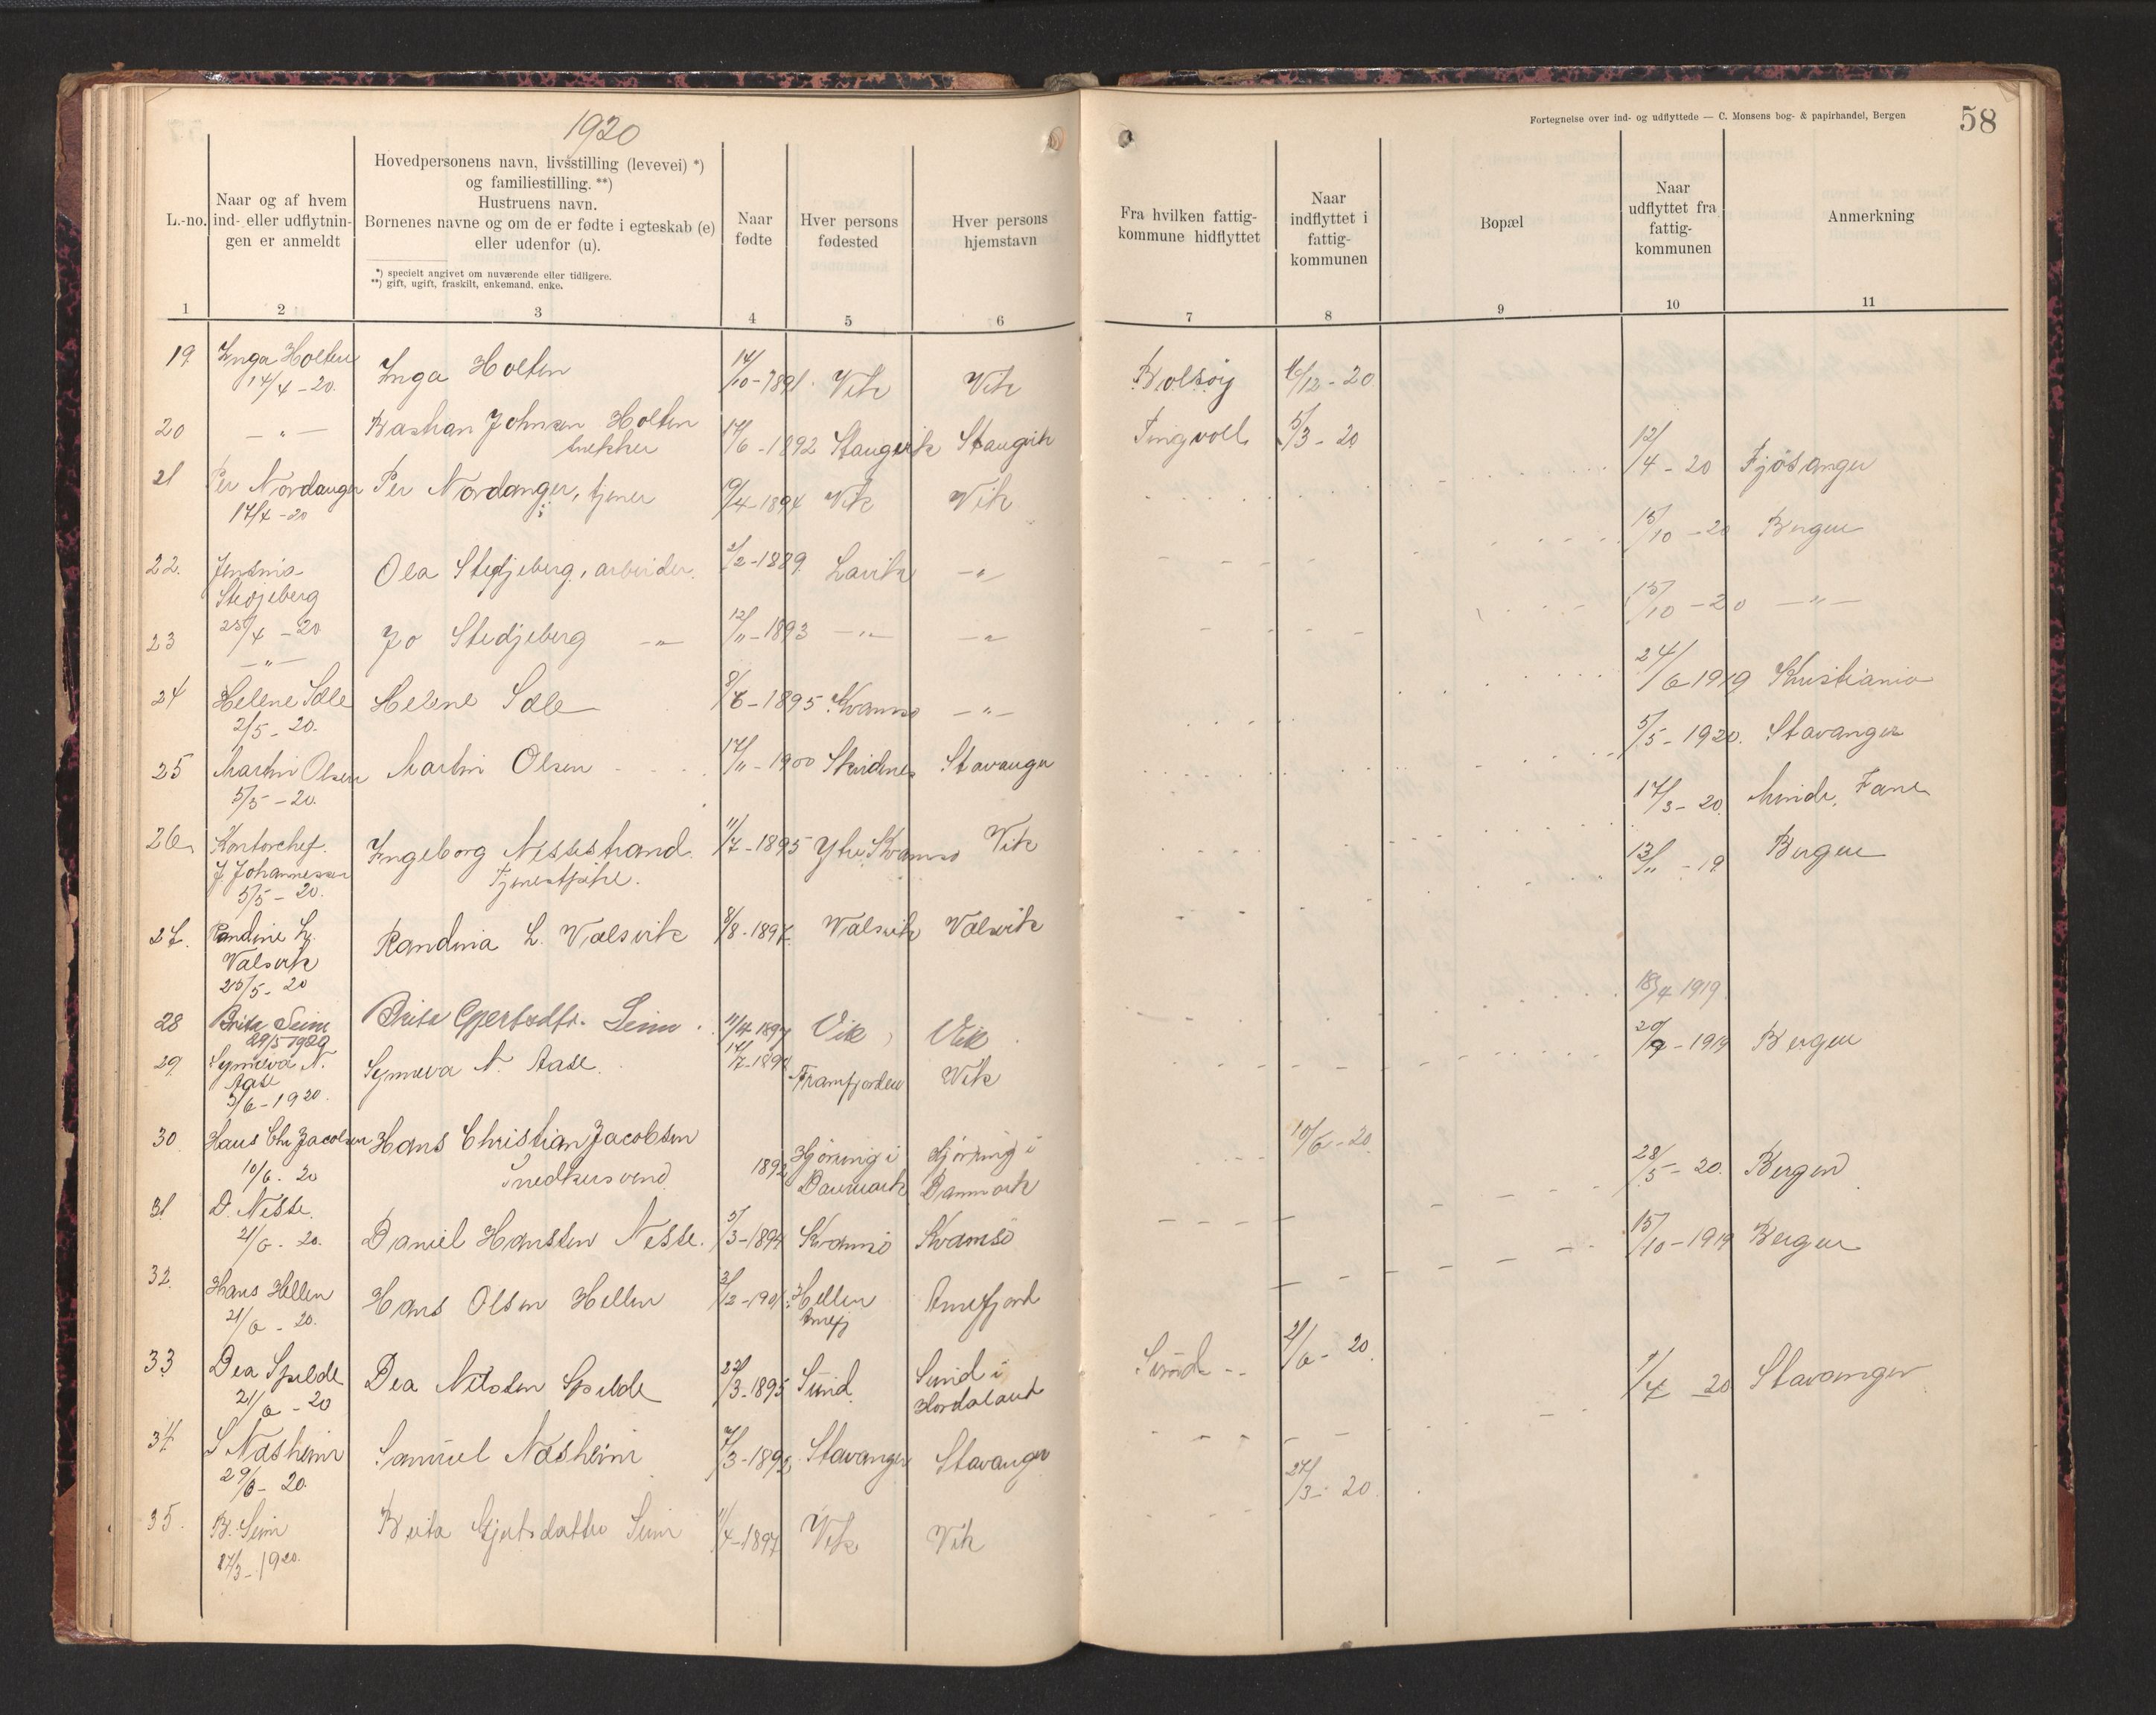 1920
Fortegnelse over ind- og udflyttede — C. Monsens bog- & papirhandel, Bergen
58
L.-no.
Naar og af hvem
ind- eller udflytnin-
gen er anmeldt
Hovedpersonens navn, livsstilling (levevei) *)
og familiestilling. **)
Hustruens navn.
Børnenes navne og om de er fødte i egteskab (e)
eller udenfor (u).
*) specielt angivet om nuværende eller tidligere.
**) gift, ugift, fraskilt, enkemand, enke.
Naar
fødte
Hver persons
fødested
Hver persons
hjemstavn
Fra hvilken fattig-
kommune hidflyttet
Naar
indflyttet i
fattig-
kommunen
Bopæl
Naar
udflyttet fra
fattig-
kommunen
Anmerkning
1 2 3 4 5 6 7 8 9 10 11
19 Inga Holten Inga Holten 14/10-1891 Vik Vik Bolsøy 16/12-20
14/4-20.
20 — " — Bastian Johnsen Holten 17/6-1892 Stangvik Stangvik Tingvoll 5/3-20
21 Per Nordanger Per Nordanger, tjener 9/4-1894 Vik Vik 12/4-20 Fjøsanger
17/4-20
22. Jensina Ola Stedjeberg, arbeider 2/2-1889 Lavik — " 15/10-20 Bergen
Stedjeberg
25/4-20
23 — " — Jo Stedjeberg — " — 12/11-1893 — " — — " 15/10-20 — " —
24 Helene Sæle Helene Sæle 8/6-1895 Kvamsø — " — 24/6 1919 Kristiania
2/5-20.
25 Martin Olsen Martin Olsen 17/11-1900 Skudenes Stavanger 5/5-1920. Stavanger
5/5-20.
26 Kontorchef Ingeborg Nessestrand 11/7-1895 Ytre Kvamsø Vik 17/3-20. Minde, Fane
J Johannessen
5/5-20.
27. Randine L. Randina L. Valsvik 8/8-1897 Valsvik Valsvik 13/11-19 Bergen
Valsvik
25/5-20
28 Brita Seim Brita Gjertsdtr. Seim 11/4 1897 Vik Vik 18/4 1919
29/5 1920
29 Synneva N. Synneva N. Aase Framfjorden Vik 20/9-1919 Bergen
Aase
5/6-1920.
30 Hans Chr Jacobsen Hans Christian Jacobsen 1892 Hjørring i Hjørring i 10/6-20.
10/6-20 Snedkersvend Danmark Danmark
31 D. Nesse. Daniel Hansten Nesse. 5/3-1894 Kvamsø Kvamsø 28/5-20. Bergen
21/6-20.
32. Hans Hellen Hans Olsen Hellen Hellen Arnefjord 15/10-1919 Bergen
21/6-20. Arnefj
33 Dea Spilde Dea Nilsden Spilde 23/3-1895 Sund Sund i Sund 21/6-20.
21/6-20 Hordaland
34 S Næsheim Samuel Næsheim Stavanger Stavanger 1/4 20 Stavanger
29/6-20.
35. B. Seim Brita Gjertsdatter Seim 11/4-1897 Vik Vik 27/3-20.
27/3-1920.